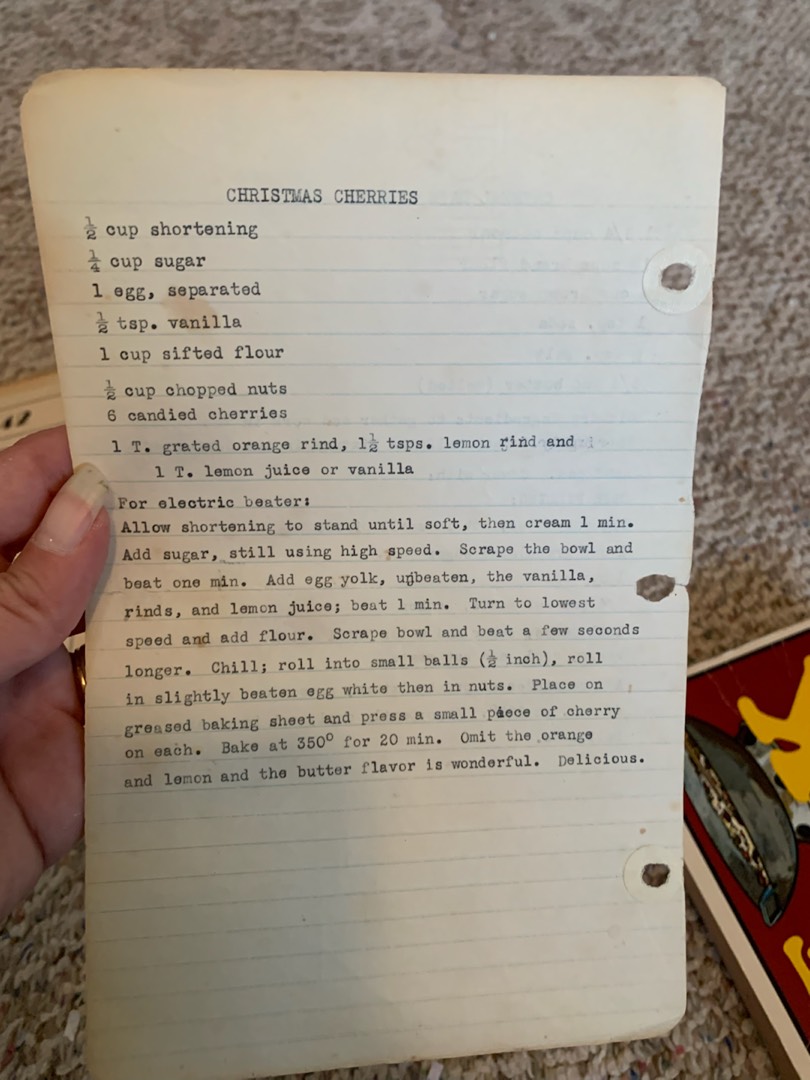 CHRISTMAS CHERRIES
½ cup shortening
¼ cup sugar
1 egg, separated
½ tsp. vanilla
1 cup sifted flour
½ cup chopped nuts
6 candied cherries
1 T. grated orange rind, 1½ tsps. lemon rind and
1 T. lemon juice or vanilla
For electric beater:
Allow shortening to stand until soft, then cream 1 min.
Add sugar, still using high speed. Scrape the bowl and
beat one min. Add egg yolk, unbeaten, the vanilla,
rinds, and lemon juice; beat 1 min. Turn to lowest
speed and add flour. Scrape bowl and beat a few seconds
longer. Chill; roll into small balls (½ inch), roll
in slightly beaten egg white then in nuts. Place on
greased baking sheet and press a small piece of cherry
on each. Bake at 350° for 20 min. Omit the orange
and lemon and the butter flavor is wonderful. Delicious.